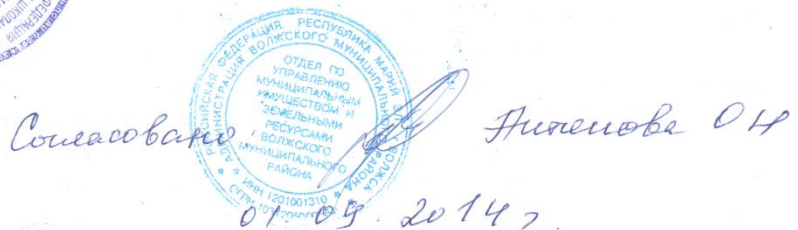 ФЕДЕРАЦИЯ
РОССИЙСКАЯ ФЕДЕРАЦИЯ РЕСПУБЛИКА МАРИЙ ЭЛ
АДМИНИСТРАЦИЯ ВОЛЖСКОГО МУНИЦИПАЛЬНОГО РАЙОНА
ОТДЕЛ ПО
УПРАВЛЕНИЮ
МУНИЦИПАЛЬНЫМ
ИМУЩЕСТВОМ И
ЗЕМЕЛЬНЫМИ
РЕСУРСАМИ
ВОЛЖСКОГО
МУНИЦИПАЛЬНОГО
РАЙОНА
ИНН 1201001310
ОГРН
Согласовано
ОН
01.09.2014г